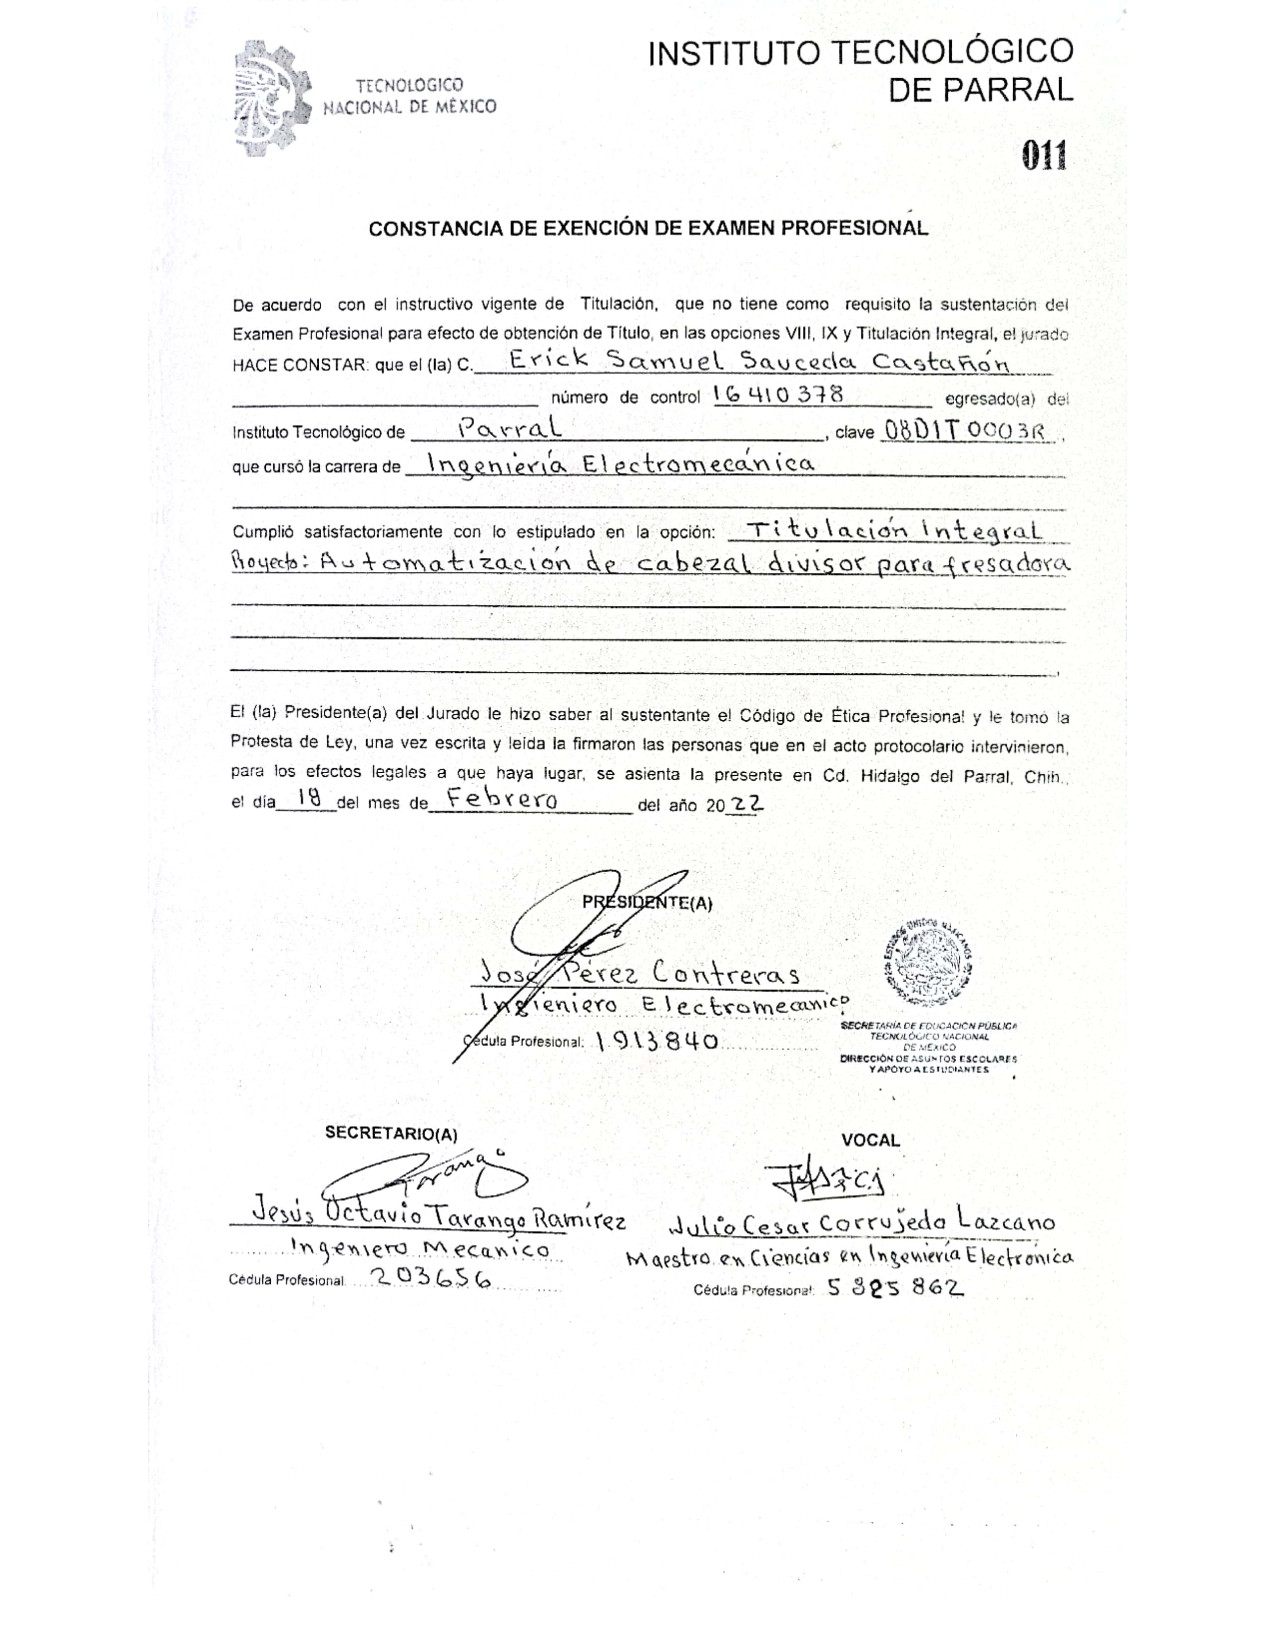 TECNOLOGICO
NACIONAL DE MÉXICO
INSTITUTO TECNOLÓGICO
DE PARRAL
011
CONSTANCIA DE EXENCIÓN DE EXAMEN PROFESIONAL
De acuerdo con el instructivo vigente de Titulación, que no tiene como requisito la sustentación del
Examen Profesional para efecto de obtención de Título, en las opciones VIII, IX y Titulación Integral, el jurado
HACE CONSTAR: que el (la) C. Erick Samuel Sauceda Castañón
número de control 16410378 egresado(a) del
Instituto Tecnológico de Parral, clave 08DIT0003R,
que cursó la carrera de Ingeniería Electromecánica
Cumplió satisfactoriamente con lo estipulado en la opción: Titulación Integral
Proyecto: Automatización de cabezal divisor para fresadora
El (la) Presidente(a) del Jurado le hizo saber al sustentante el Código de Ética Profesional y le tomo la
Protesta de Ley, una vez escrita y leída la firmaron las personas que en el acto protocolario intervinieron,
para los efectos legales a que haya lugar, se asienta la presente en Cd. Hidalgo del Parral, Chih.,
el día 18 del mes de Febrero del año 2022
PRESIDENTE(A)
José Pérez Contreras
Ingieniero Electromecanico
Cédula Profesional: 1913840
ESTADOS UNIDOS MEXICANOS
SECRETARÍA DE EDUCACIÓN PÚBLICA
TECNOLÓGICO NACIONAL
DE MÉXICO
DIRECCIÓN DE ASUNTOS ESCOLARES
Y APOYO A ESTUDIANTES
SECRETARIO(A)
Tarango
Jesús Octavio Tarango Ramírez
Ingeniero Mecanico
Cédula Profesional: 203656
VOCAL
Julio Cesar Corrujedo Lazcano
Maestro en Ciencias en Ingeniería Electrónica
Cédula Profesional: 5825862